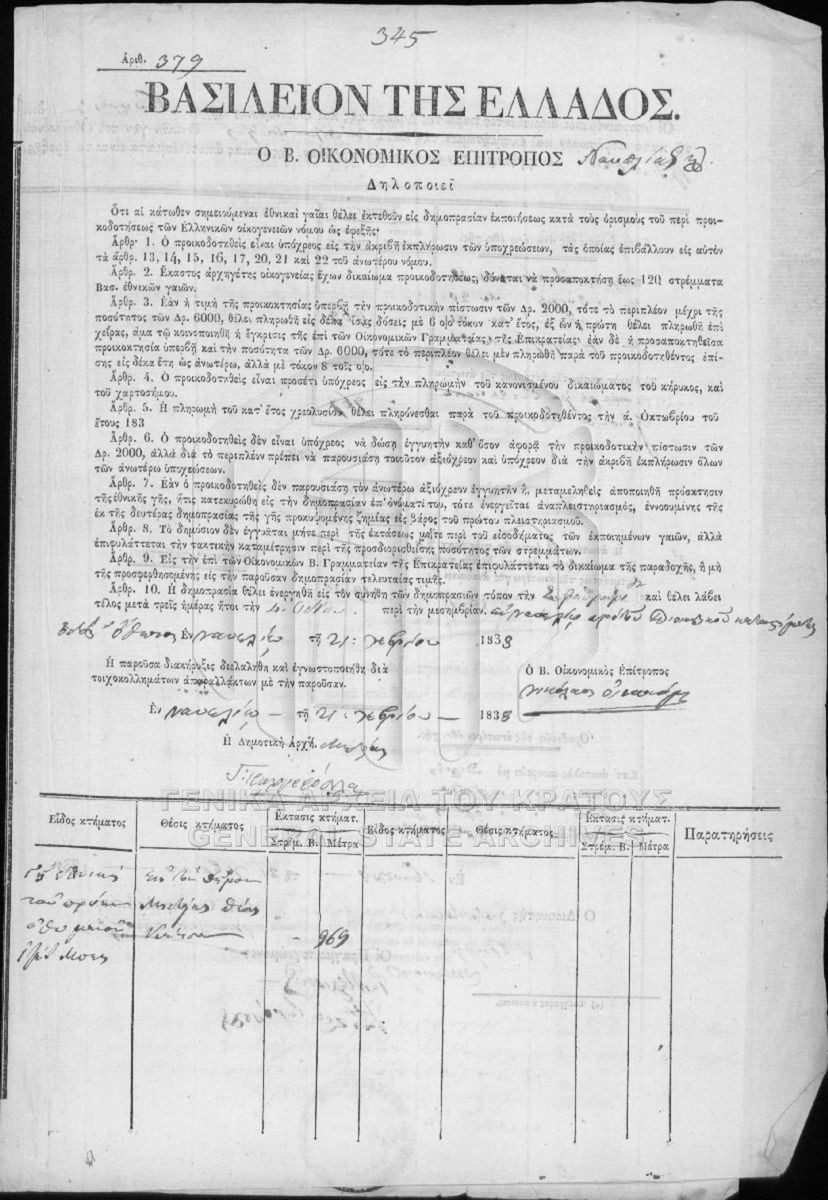 345
Ἀριθ. 379
ΒΑΣΙΛΕΙΟΝ ΤΗΣ ΕΛΛΑΔΟΣ.
Ο Β. ΟΙΚΟΝΟΜΙΚΟΣ ΕΠΙΤΡΟΠΟΣ Ναυπλίας
Δηλοποιεῖ
Ὅτι αἱ κάτωθεν σημειούμεναι ἐθνικαὶ γαῖαι θέλει ἐκτεθοῦν εἰς δημοπρασίαν ἐκποιήσεως κατὰ τοὺς ὁρισμοὺς τοῦ περὶ προι-
κοδοτήσεως τῶν Ἑλληνικῶν οἰκογενειῶν νόμου ὡς ἐφεξῆς·
Ἄρθρ· 1. Ὁ προικοδοτηθεὶς εἶναι ὑπόχρεος εἰς τὴν ἀκριβῆ ἐκπλήρωσιν τῶν ὑποχρεώσεων, τὰς ὁποίας ἐπιβάλλουν εἰς αὐτὸν
τὰ ἄρθρ. 13, 14, 15, 16, 17, 20, 21 καὶ 22 τοῦ ἀνωτέρω νόμου.
Ἄρθρ. 2. Ἕκαστος ἀρχηγέτης οἰκογενείας ἔχων δικαίωμα προικοδοτήσεως, δύναται νὰ προσαποκτήσῃ ἕως 120 στρέμματα
Βασ. ἐθνικῶν γαιῶν.
Ἄρθρ. 3. Ἐὰν ἡ τιμὴ τῆς προικοκτησίας ὑπερβῇ τὴν προικοδοτικὴν πίστωσιν τῶν Δρ. 2000, τότε τὸ περιπλέον μέχρι τῆς
ποσότητος τῶν Δρ. 6000, θέλει πληρωθῆ εἰς δέκα ἴσας δόσεις μὲ 6 ο)ο τόκον κατ' ἔτος, ἐξ ὧν ἡ πρώτη θέλει πληρωθῆ ἐπὶ
χεῖρας, ἅμα τῷ κοινοποιηθῇ ἡ ἔγκρισις τῆς ἐπὶ τῶν Οἰκονομικῶν Γραμματείας τῆς Ἐπικρατείας· ἐὰν δὲ ἡ προσαποκτηθεῖσα
προικοκτησία ὑπερβῇ καὶ τὴν ποσότητα τῶν Δρ. 6000, τότε τὸ περιπλέον θέλει μὲν πληρωθῆ παρὰ τοῦ προικοδοτηθέντος ἐπί-
σης εἰς δέκα ἔτη ὡς ἀνωτέρω, ἀλλὰ μὲ τόκον 8 τοῖς ο)ο.
Ἄρθρ. 4. Ὁ προικοδοτηθεὶς εἶναι προσέτι ὑπόχρεος εἰς τὴν πληρωμὴν τοῦ κανονισμένου δικαιώματος τοῦ κήρυκος, καὶ
τοῦ χαρτοσήμου.
Ἄρθρ. 5. Ἡ πληρωμὴ τοῦ κατ' ἔτος χρεολυσίου θέλει πληρόνεσθαι παρὰ τοῦ προικοδοτηθέντος τὴν ά. Ὀκτωβρίου τοῦ
ἔτους 183
Ἄρθρ. 6. Ὁ προικοδοτηθεὶς δὲν εἶναι ὑπόχρεος νὰ δώσῃ ἐγγυητὴν καθ' ὅσον ἀφορᾷ τὴν προικοδοτικὴν πίστωσιν τῶν
Δρ. 2000, ἀλλὰ διὰ τὸ περιπλέον πρέπει νὰ παρουσιάσῃ τοιοῦτον ἀξιόχρεον καὶ ὑπόχρεον διὰ τὴν ἀκριβῆ ἐκπλήρωσιν ὅλων
τῶν ἀνωτέρω ὑποχεώσεων.
Ἄρθρ. 7. Ἐὰν ὁ προικοδοτηθεὶς δὲν παρουσιάσῃ τὸν ἀνωτέρω ἀξιόχρεον ἐγγυητὴν ἢ, μεταμεληθεὶς ἀποποιηθῇ πρόσκτησιν
τῆς ἐθνικῆς γῆς, ἥτις κατεκυρώθη εἰς τὴν δημοπρασίαν ἐπ' ὀνόματί του, τότε ἐνεργεῖται ἀναπλειστηριασμὸς, ἐννοουμένης τῆς
ἐκ τῆς δευτέρας δημοπρασίας τῆς γῆς προκυψομένης ζημίας εἰς βάρος τοῦ πρώτου πλειστηριασμοῦ.
Ἄρθρ. 8. Τὸ δημόσιον δὲν ἐγγυᾶται μήτε περὶ τῆς ἐκτάσεως μήτε περὶ τοῦ εἰσοδήματος τῶν ἐκποιημένων γαιῶν, ἀλλὰ
ἐπιφυλάττεται τὴν τακτικὴν καταμέτρησιν περὶ τῆς προσδιορισθείσης ποσότητος τῶν στρεμμάτων.
Ἄρθρ. 9. Εἰς τὴν ἐπὶ τῶν Οἰκονομικῶν Β. Γραμματείαν τῆς Ἐπικρατείας ἐπιφυλάττεται τὸ δικαίωμα τῆς παραδοχῆς, ἢ μὴ
τῆς προσφερθησομένης εἰς τὴν παροῦσαν δημοπρασίαν τελευταίας τιμῆς.
Ἄρθρ. 10. Ἡ δημοπρασία θέλει ἐνεργηθῆ εἰς τὸν συνήθη τῶν δημοπρασιῶν τόπον τὴν καὶ θέλει λάβει
τέλος μετὰ τρεῖς ἡμέρας ἤτοι τὴν περὶ τὴν μεσημβρίαν.
Ἐν Ναυπλίῳ τῇ 21: 7εβρίου 1838
Ἡ παροῦσα διακήρυξις διελαλήθη καὶ ἐγνωστοποιήθη διὰ
τοιχοκολλημάτων ἀπαραλλάκτων μὲ τὴν παροῦσαν.
Ὁ Β. Οἰκονομικὸς Ἐπίτροπος
Ἐν Ναυπλίῳ — τῇ 21: 7εβρίου — 1838
Ἡ Δημοτικὴ Ἀρχή.
ΓΕΝΙΚΑ ΑΡΧΕΙΑ ΤΟΥ ΚΡΑΤΟΥΣ
GENERAL STATE ARCHIVES
Εἶδος κτήματος Θέσις κτήματος Ἔκτασις κτήματ. Εἶδος κτήματος Θέσις κτήματος Ἔκτασις κτήματ. Παρατηρήσεις
Στρέμ. Β. Μέτρα Στρέμ. Β. Μέτρα
969